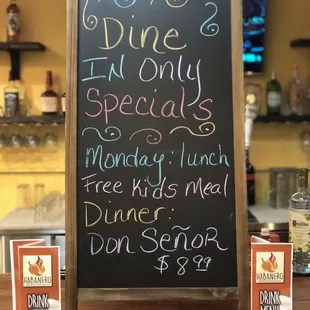 Dine
IN Only
Specials
Monday: lunch
Free Kids Meal
Dinner:
DON SEÑOR
$8.99
HABANERO
DRINK
HABANERO
DRINK
MENU